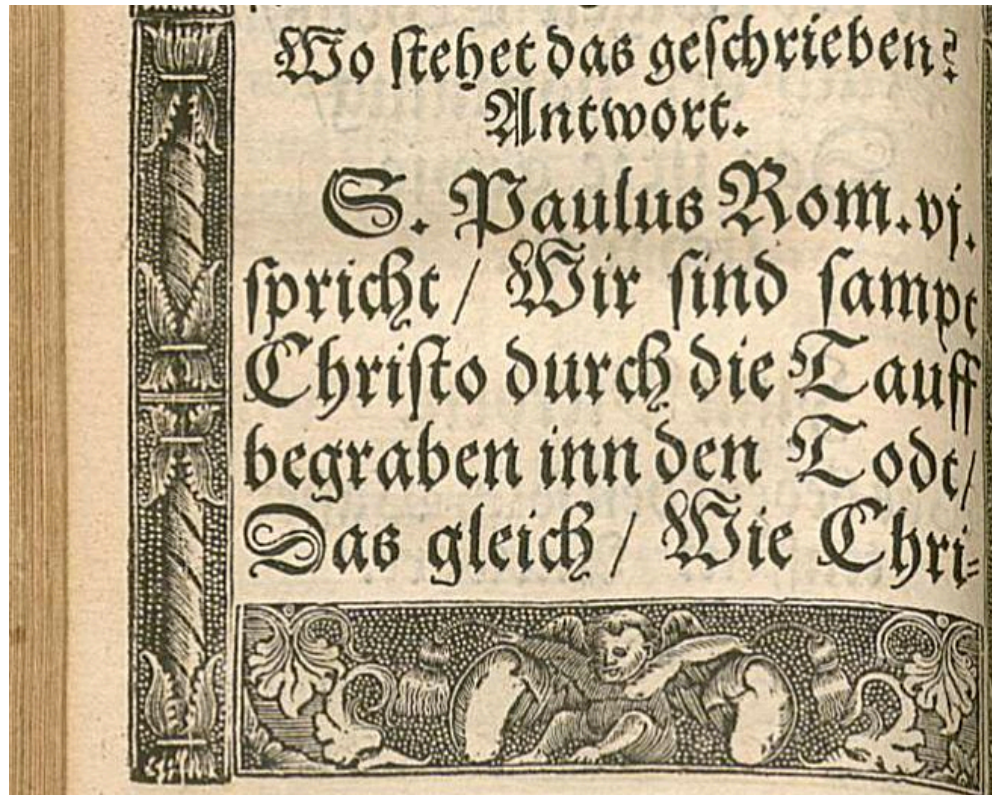 Wo ſtehet das geſchrieben?
Antwort.
S. Paulus Rom. vj.
ſpricht / Wir ſind ſampt
Chriſto durch die Tauff
begraben inn den Todt /
Das gleich / Wie Chri⸗